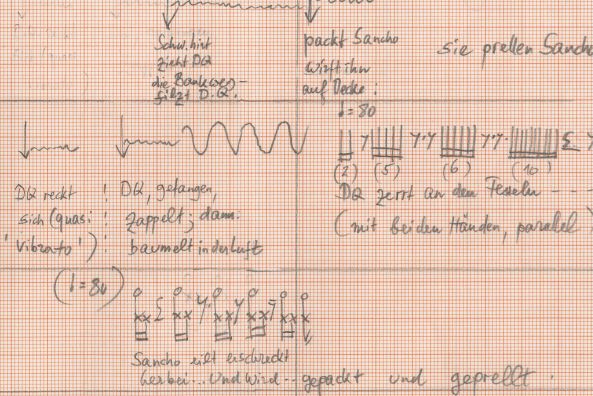 Schw.hirt
zieht DQ
die Bank weg -
filzt D.Q.
packt Sancho
wirft ihn
auf Decke:
sie prellen Sancho
♩=80
(2) (5) (6) (10)
DQ reckt
sich (quasi
'Vibrato')
DQ, gefangen,
zappelt; dann:
baumelt in der Luft
DQ zerrt an den Fesseln - - -
(mit beiden Händen, parallel)
(♩=80)
Sancho eilt erschreckt
herbei... Und wird... gepackt und geprellt.